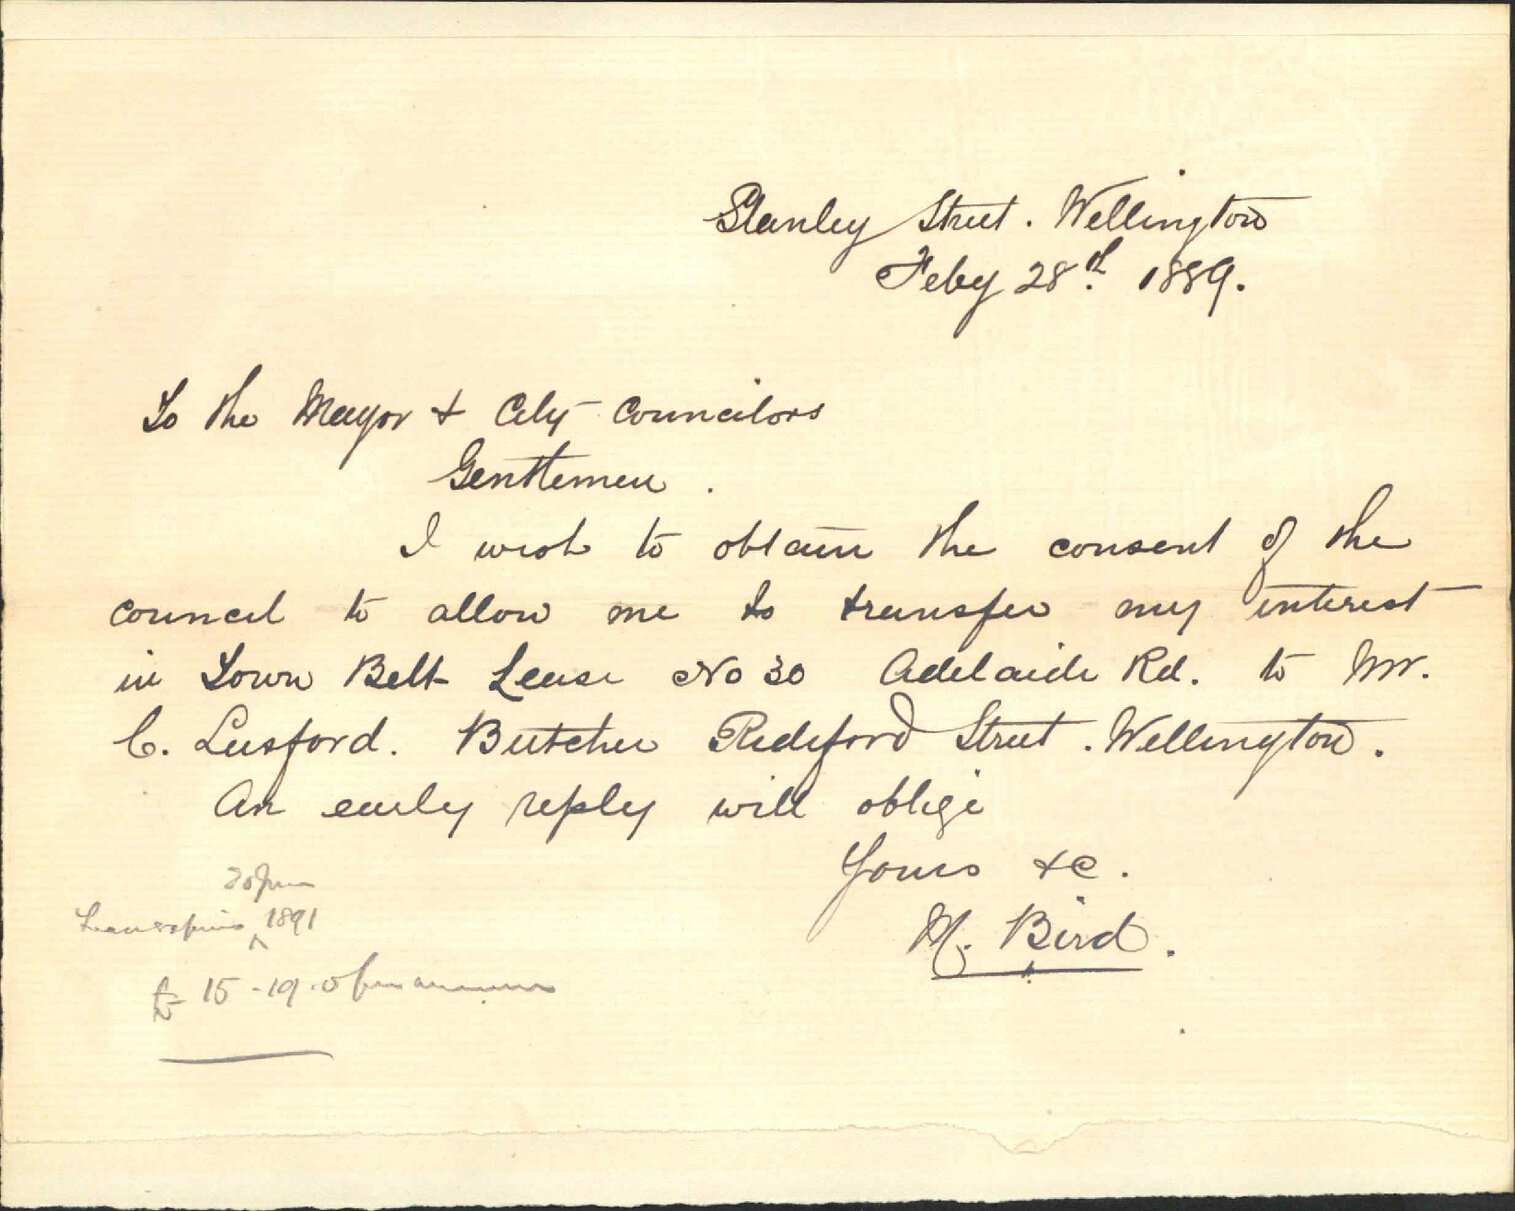 Stanley Street. Wellington
Feby 28th. 1889.
To the Mayor & City Councilors
Gentlemen.
I wish to obtain the consent of the
council to allow me to transfer my interest
in Town Belt Lease No 30 Adelaide Rd. to Mr.
C. Lusford. Butcher Rideford Street. Wellington.
An early reply will oblige
Yours &c.
M. Bird.
30 June
Lease expires ^ 1891
£ 15-19-0 per annum